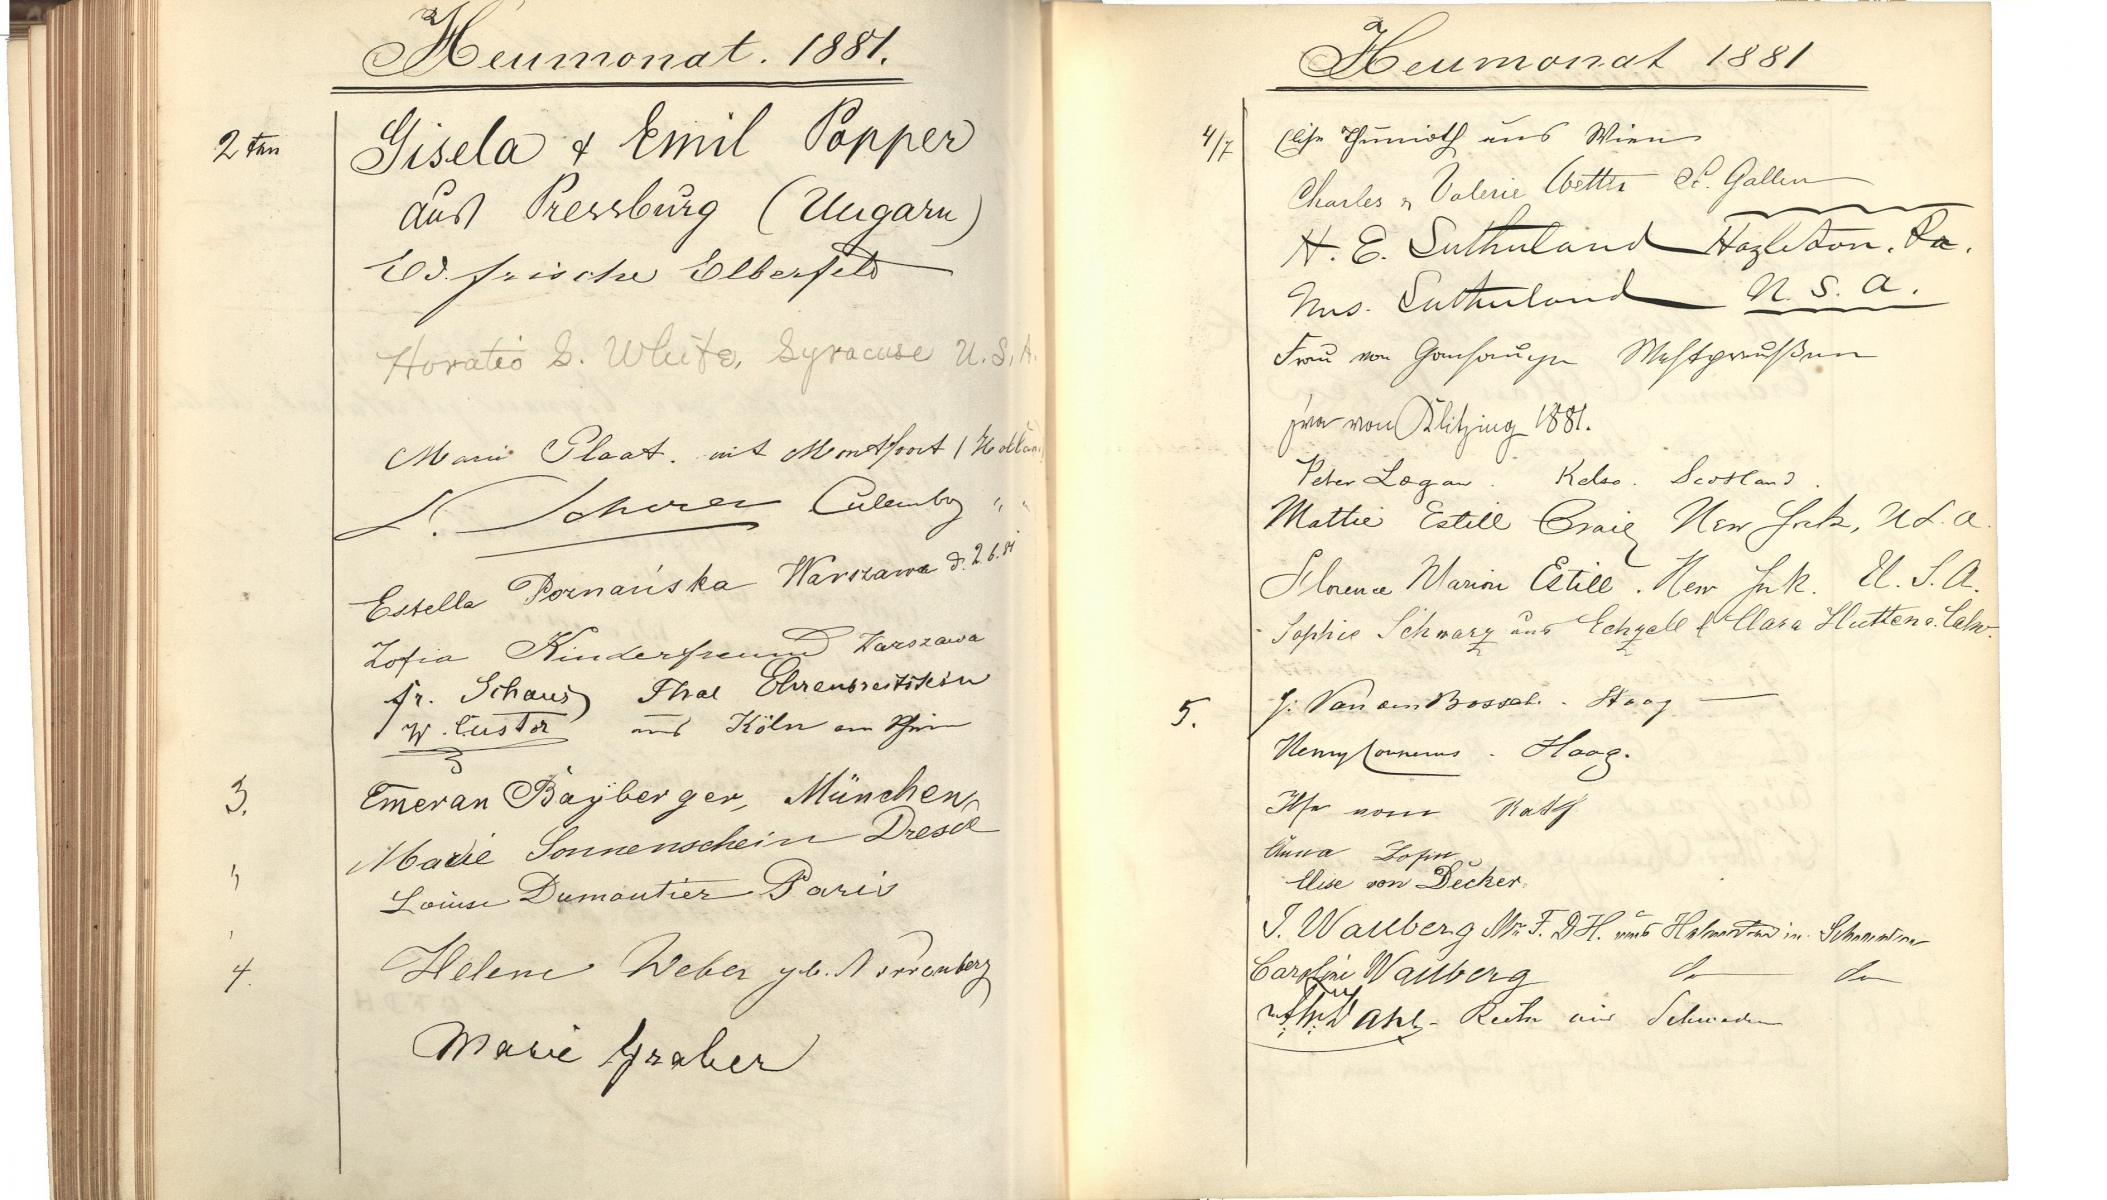 Heumonat. 1881.
2ten
Gisela & Emil Popper
aus Pressburg (Ungarn)
Ed. Frische Elberfeld
Horatio S. White, Syracuse U.S.A.
Marie Plaat. uit Montfoort (Holland
Culemborg " "
Estella Poznańska Warszawa d. 2.6.81
Zofia Kinderfreund Warszawa
Fr. Schaus Thal Ehrenbreitstein
W. Custor aus Köln am Rhein
3.
Emeran Bayberger, München
Marie Sonnenschein Dresd
"
Louise Dumoutier Paris
4.
Helene Weber geb. Norrenberg
Marie Graber
Heumonat 1881
4/7
aus Wien
Charles & Valerie Wetter St. Gallen
H. E. Sutherland Hazleton. Pa.
Mrs. Sutherland U.S.A.
Frau von Westpreußen
von Klitzing 1881.
Peter Logan. Kelso. Scotland.
Mattie Estill Craig New York, U.S.A.
Florence Marion Estill. New York. U.S.A.
Sophie Schwarz aus Echzell & Clara Hutten a. Calw.
5.
J. Van den Bossch. Haag
Henry Haag.
vom Rath
Anna
Elise von Decker.
J. Wallberg Mr F. D H. aus Halmstad in Schweden
Caroline Wallberg do do
Schweden